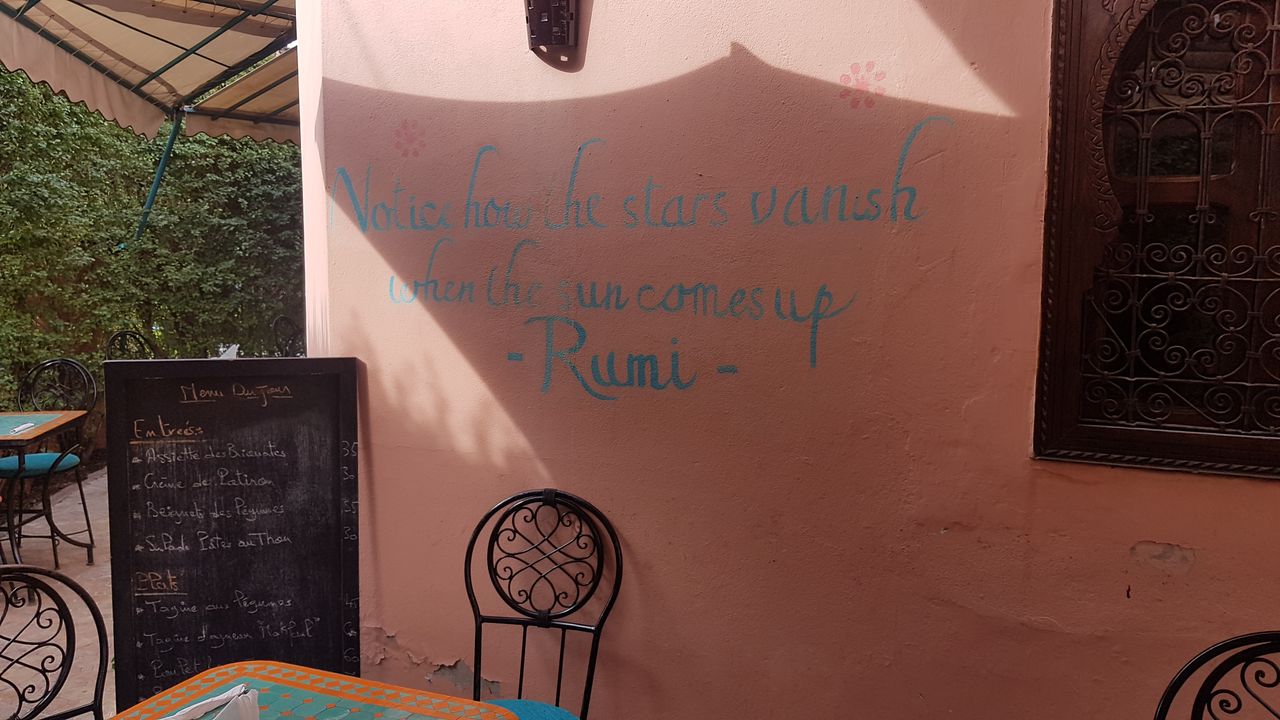 Notice how the stars vanish
when the sun comes up
- Rumi -
Menu Du Jour
Entrées
Assiette des Briouates 35
Crème de Potiron 30
Beignets des Légumes 35
Salade Pates au Thon 30
Plats
Tagine aux Légumes 45
Tagine d'agneau